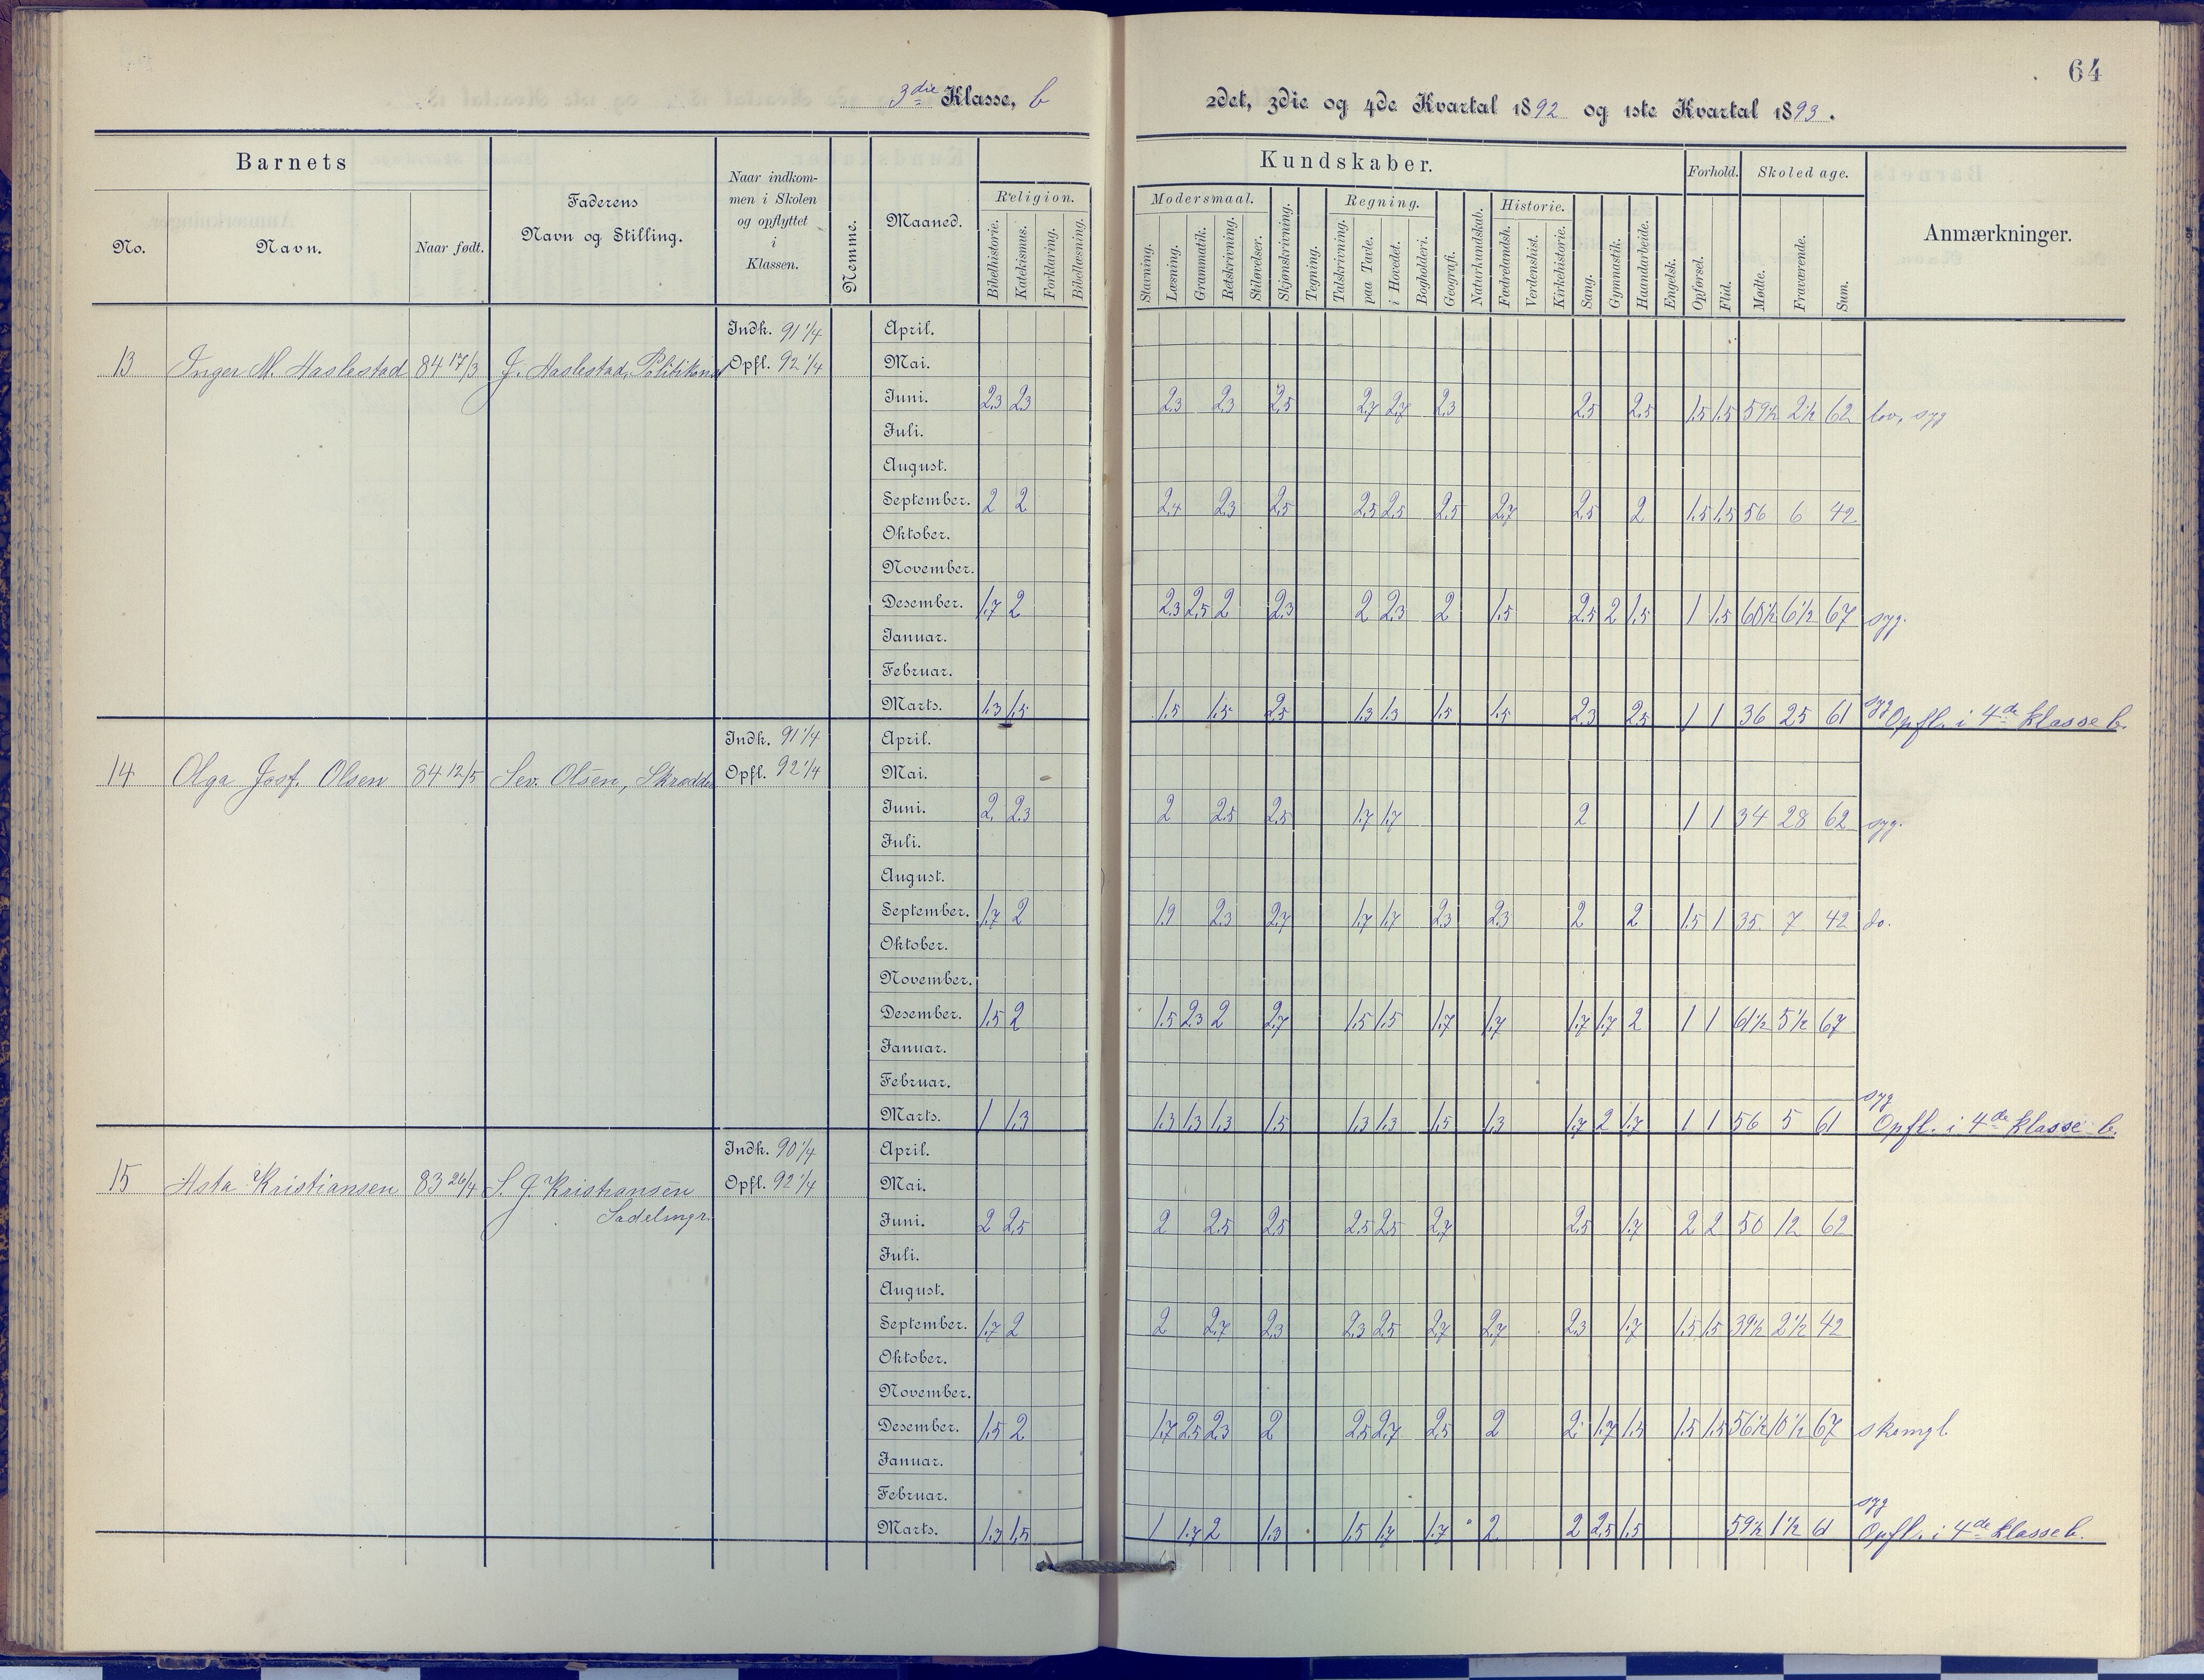 64
3die Klasse, b
2det, 3die og 4de Kvartal 1892 og 1ste Kvartal 1893.
Barnets
Faderens Navn og Stilling.
Naar indkommen i Skolen og opflyttet i Klassen.
Nemme.
Maaned.
Religion.
Kundskaber.
Forhold.
Skoledage.
Anmærkninger.
No.
Navn.
Naar født.
Bibelhistorie. Katekismus. Forklaring. Bibellæsning.
Modersmaal.
Stavning. Læsning. Grammatik. Retskrivning. Stiløvelser. Skjønskrivning. Tegning.
Regning.
Talskrivning. paa Tavle. i Hovedet. Bogholderi. Geografi. Naturkundskab.
Historie.
Fædrelandsh. Verdenshist. Kirkehistorie. Sang. Gymnastik. Haandarbeide. Engelsk. Opførsel. Flid. Mødte. Fraværende. Sum.
Indk. 91 1/4 April.
13 Inger M. Haslestad 84 17/3 J. Haslestad, Politikonst Opfl. 92 1/4 Mai.
Juni. 2.3 2.3 2.3 2.3 2.5 2.7 2.7 2.3 2.5 2.5 1.5 1.5 59½ 2½ 62 lov, syg
Juli.
August.
September. 2 2 2.4 2.3 2.5 2.5 2.5 2.5 2.7 2.5 2 1.5 1.5 56 6 42
Oktober.
November.
Desember. 1.7 2 2.3 2.5 2 2.3 2 2.3 2 1.5 2.5 2 1.5 1 1.5 60½ 6½ 67 syg.
Januar.
Februar.
Marts. 1.3 1.5 1.5 1.5 2.5 1.3 1.3 1.5 1.5 2.3 2.5 1 1 36 25 61 syg Opfl. i 4de klasse b.
Indk. 91 1/4 April.
14 Olga Josf. Olsen 84 12/5 Sev. Olsen, Skrædder Opfl. 92 1/4 Mai.
Juni. 2 2.3 2 2.5 2.5 1.7 1.7 2 1 1 34 28 62 syg.
Juli.
August.
September. 1.7 2 1.9 2.3 2.7 1.7 1.7 2.3 2.3 2 2 1.5 1 35 7 42 do.
Oktober.
November.
Desember. 1.5 2 1.5 2.3 2 2.7 1.5 1.5 1.7 1.7 1.7 1.7 2 1 1 61½ 5½ 67
Januar.
Februar.
Marts. 1 1.3 1.3 1.3 1.3 1.5 1.3 1.3 1.5 1.3 1.7 2 1.7 1 1 56 5 61 syg Opfl. i 4de klasse b.
Indk. 90 1/4 April.
15 Asta Kristiansen 83 26/4 S. J. Kristiansen Opfl. 92 1/4 Mai.
Sadelmgr.
Juni. 2 2.5 2 2.5 2.5 2.5 2.5 2.7 2.5 1.7 2 2 50 12 62
Juli.
August.
September. 1.7 2 2 2.7 2.3 2.3 2.5 2.7 2.7 2.3 1.7 1.5 1.5 39½ 2½ 42
Oktober.
November.
Desember. 1.5 2 1.7 2.5 2.3 2 2.5 2.7 2.5 2 2 1.7 1.5 1.5 1.5 56½ 10½ 67 skomgl
Januar.
Februar.
Marts. 1.3 1.5 1 1.7 2 1.3 1.5 1.7 1.7 2 2 2.5 1.5 59½ 1½ 61 syg Opfl. i 4de klasse b.